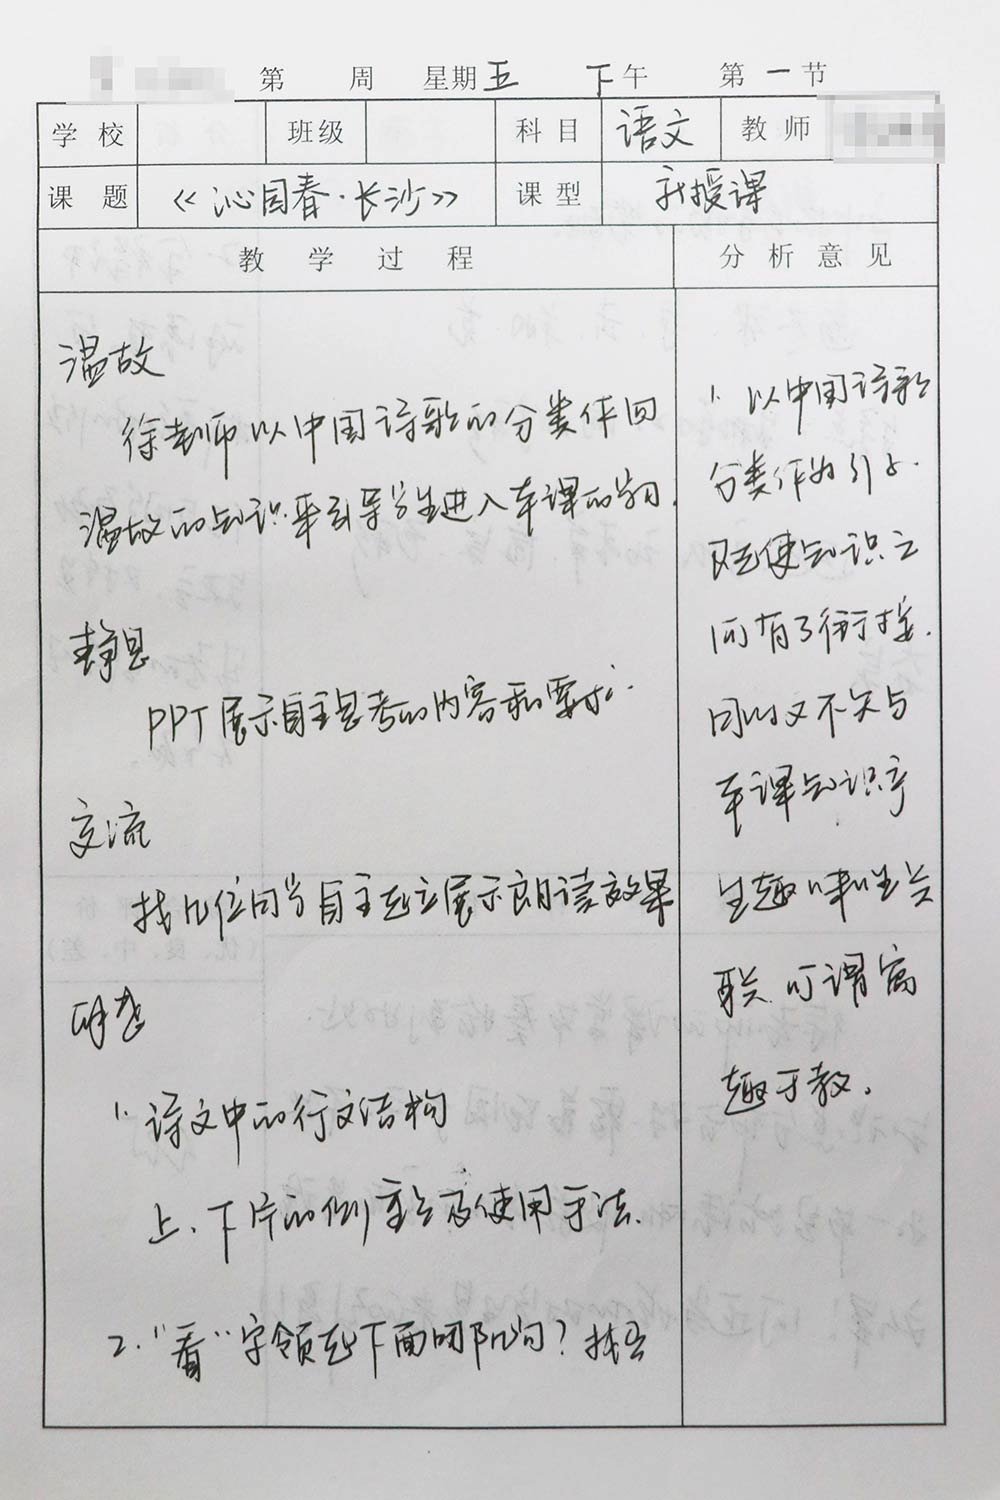 第 周 星期五 下午 第一节
学校 班级 科目 语文 教师
课题 《沁园春·长沙》 课型 新授课
教学过程 分析意见
温故
徐老师以中国诗歌的分类作回
温故的知识来引导学生进入本课的学习.
静思
PPT展示自主思考的内容和要求.
交流
找几位同学自主起立展示朗读效果
研想
1. 诗文中的行文结构
上、下片的侧重点及使用手法.
2. "看"字领起下面哪几句？找出
1. 以中国诗歌
分类作为引入.
既使知识之
间有了衔接.
同时又不失与
本课知识产
生趣味性关
联.可谓寓
趣于教.